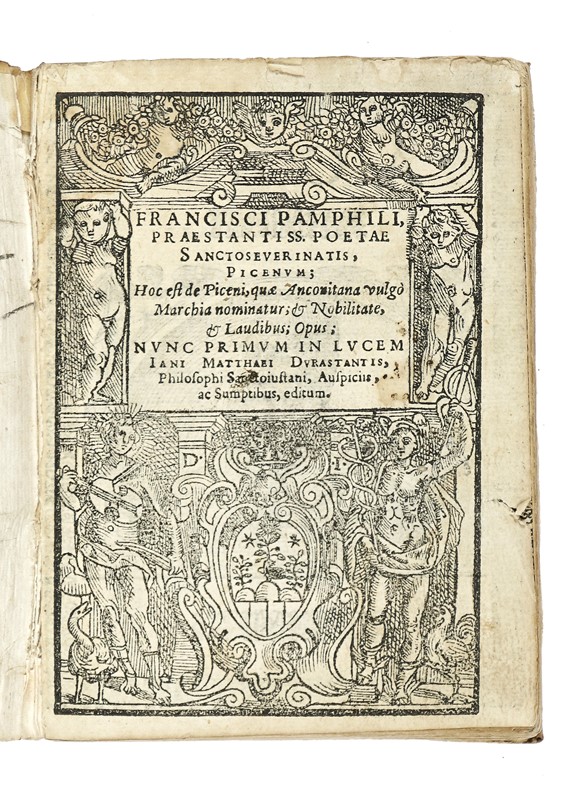 FRANCISCI PAMPHILI,
PRAESTANTISS. POETAE
SANCTOSEVERINATIS,
PICENVM;
Hoc est de Piceni, quæ Anconitana vulgò
Marchia nominatur; & Nobilitate,
& Laudibus; Opus;
NVNC PRIMVM IN LVCEM
IANI MATTHAEI DVRASTANTIS,
Philosophi Sanctoiustani, Auspiciis,
ac Sumptibus, editum.
D. I.